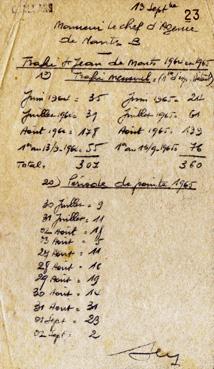 13 Septembre
23
Monsieur le Chef d'Agence
de Monts B
Trafic St Jean de Monts 1964 et 1965
1°) Trafic mensuel
Juin 1964 = 35 Juin 1965 = 24
Juillet 1964 = 39 Juillet 1965 = 61
Août 1964 = 178 Août 1965 = 199
1er au 13/9/64 55 1er au 13/9/1965 76
Total. 307 360
2°) Période de pointe 1965
30 Juillet = 9
31 Juillet = 11
02 Août = 18
03 Août =
Août = 11
28 Août = 16
29 Août = 19
30 Août = 14
31 Août = 31
01 Sept = 23
02 Sept = 2